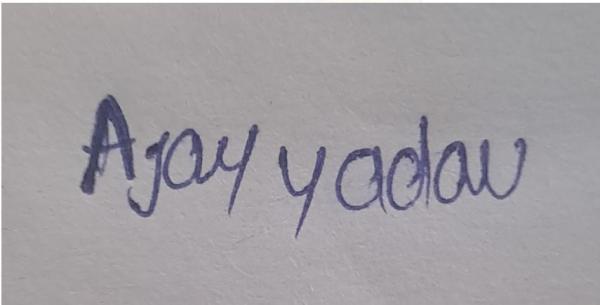 Ajay yadav